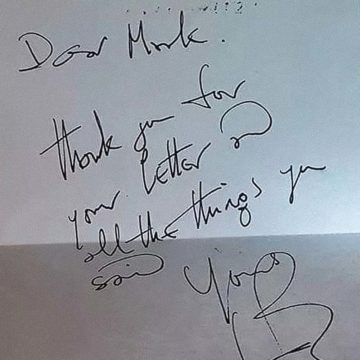 Dear Mark.
thank you for
your letter and
all the things you
said
Yours